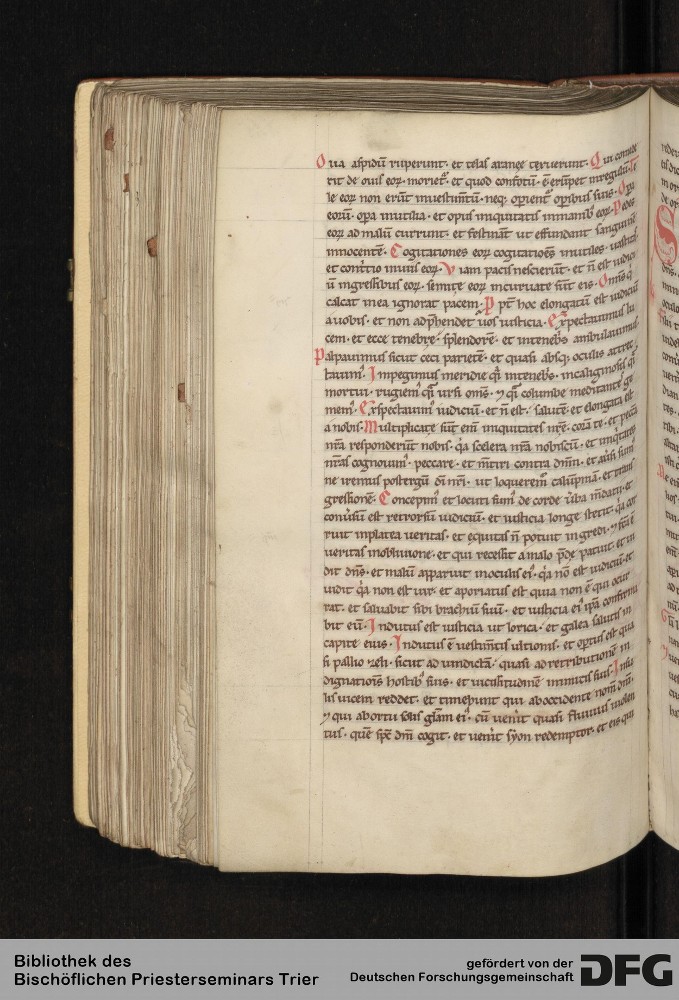 Oua aspidū ruperunt· et telas aranee texerunt· Qui comede
rit de ouis eoꝝ· morietᷣ· et quod confotū· ē· erūpet inregulū· Te
le eoꝝ non erūt inuestimtū· neqꝫ opientᷣ opibus suis· Opa
eorū· opa inutilia· et opus iniquitatis inmanibꝫ eoꝝ· Pedes
eoꝝ admalū currunt· et festināt ut effundant sanguinē
innocentē· Cogitationes eoꝝ cogitatioēs inutiles· uastitas
et cont'tio inuiis eoꝝ· Uiam pacis nescierunt· et n̄ est iudici
ū ingressibus eoꝝ· semite eoꝝ incuruate sūt eis· Omis q'
calcat inea ignorat pacem· Ppt' hoc elongatū est iudiciū
auobis· et non adphendet uos iusticia· Expectauimus lu
cem· et ecce tenebre· splendorē· et intenebris ambulauimus·
Palpauimus sicut ceci parietē· et quasi absqꝫ oculis attrec
tauimꝰ· Impegimus meridie qi intenebris· incaliginosis qi
mortui· rugiemꝰ qi ursi oms· ⁊ qi columbe meditante ge
memꝰ· Expectauimꝰ iudiciū· et n̄ est· salutē· et elongata est
anobis· Multiplicate sūt enī iniquitates nr̄e· corā te· et peccā
nr̄a responderūt nobis· q̇a scelera nr̄a nobiscū· et iniq'tates
nr̄as cognouimꝰ· peccare· et mētiri contra dn̄m· et au'si sumꝰ
ne iremus postergū di nr̄i· ut loqueremꝰ calūpniā· et trans
gressionē· Concepimꝰ et locuti sumꝰ de corde u'ba mdacii· et
conu'sum est retrorsū iudiciū· et iusticia longe stetit· q̇a cor
ruit inplatea ueritas· et equitas n̄ potuit ingredi· ⁊ fc̄a ē
ueritas inobliuione· et qui recessit amalo p̄de patuit· et ui
dit dn̄s· et malū apparuit inoculis eiꝰ· q̇a nō est iudiciū· et
uidit q̇a non est uir· et aporiatus est quia non ē qui occur
rat· et saluabit sibi brachiū suū· et iusticia eiꝰ ip̄a confirma
bit eū· Indutus est iusticia ut lorica· et galea salutis in
capite eius· Indutus ē uestimtis ultionis· et optus est quа
si pallio zeli· sicut ad uindictā· quasi adretributionē in
dignatiōis hostibꝫ suis· et uicissitudinē inimicis suis· Insu
lis uicem reddet· et timebunt qui aboccidente nomē dn̄i·
⁊ qui abortu solis glām eiꝰ· cū uenit quasi fluuius uiolen
tus· quē spc̄ dn̄i cogit· et uenit syon redemptor· et eis qui
Bibliothek des
Bischöflichen Priesterseminars Trier
gefördert von der
Deutschen Forschungsgemeinschaft
DFG